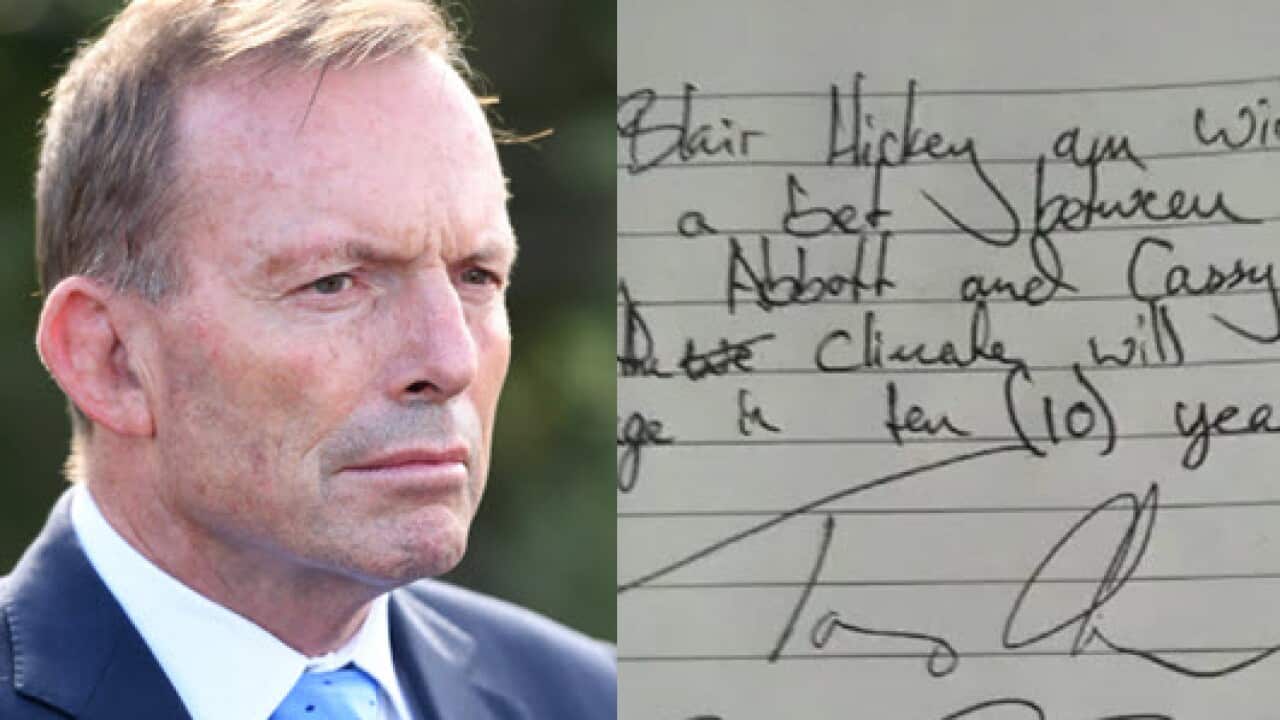 Blair Hickey am wi
a bet between
Abbott and Cassy
climate will
ge in ten (10) yea
Tony